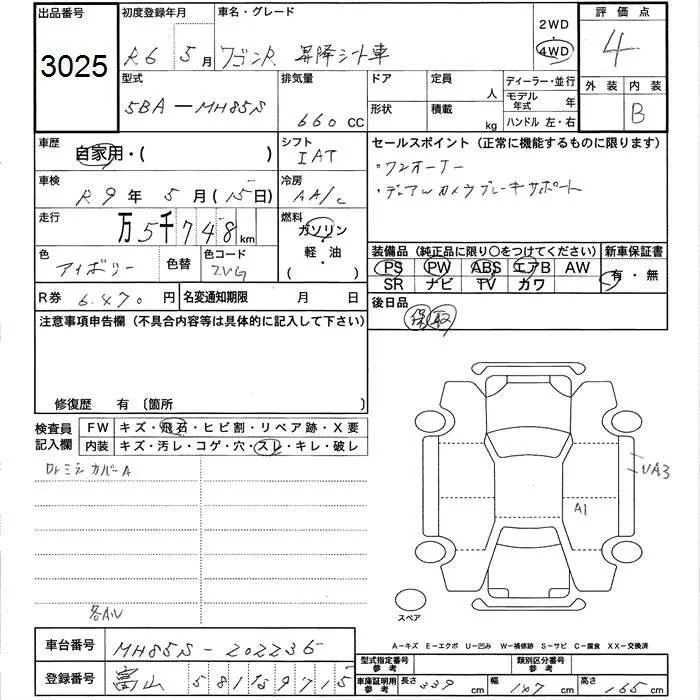 出品番号
3025
初度登録年月
R6 5月
車名・グレード
ワゴンR 昇降シート車
2WD
・
4WD
評価点
4
外装 内装
B
型式
5BA-MH85S
排気量
660 CC
ドア
形状
定員
人
積載
kg
ディーラー・並行
モデル年式 年
ハンドル 左・右
車歴
自家用・( )
シフト
IAT
車検
R9年 5月(15日)
冷房
AA/C
走行
万5千748km
燃料
ガソリン
・
軽・油
( ・ )
色
アイボリー
色替
色コード
ZVG
R券 6.470円
名変通知期限 月 日
セールスポイント(正常に機能するものに限ります)
・ワンオーナー
・デュアルカメラブレーキサポート
装備品(純正品に限り〇をつけてください)
PS PW ABS エアB AW
SR ナビ TV カワ
新車保証書
有・無
後日品
保 取
注意事項申告欄(不具合内容等は具体的に記入して下さい)
修復歴 有〔箇所
検査員記入欄
FW キズ・飛石・ヒビ割・リペア跡・X要
内装 キズ・汚レ・コゲ・穴・スレ・キレ・破レ
カバーA
UA3
A1
スペア
A-キズ E-エクボ U-凹み W-補修跡 S-サビ C-腐食 XX-交換済
車台番号
MH85S-202236
登録番号
富山 581
型式指定番号
参考
類別区分番号
参考
車庫証明用
参考
長さ 339cm
幅 147cm
高さ 165cm